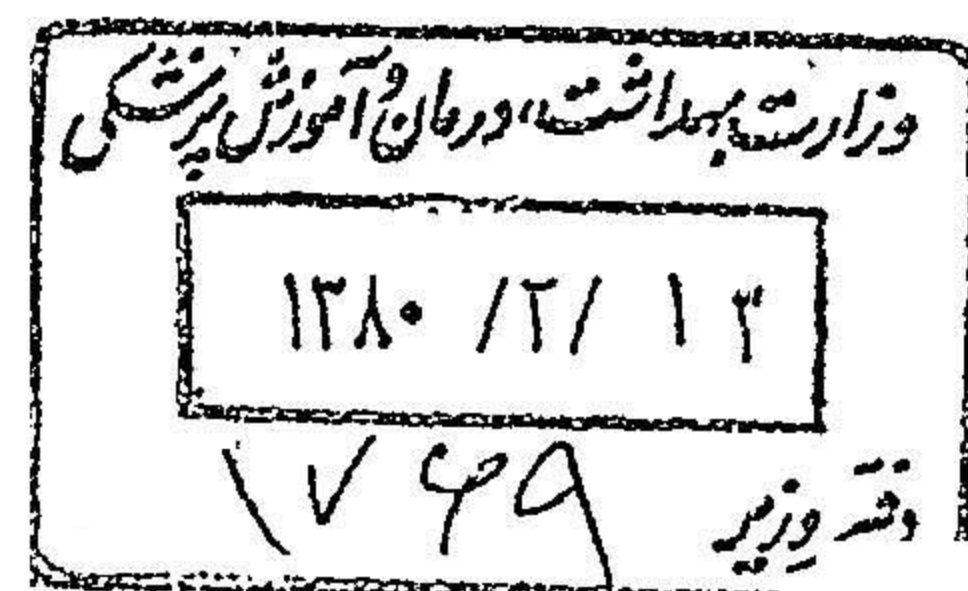 وزارت بهداشت، درمان و آموزش پزشکی
۱۳۸۰ /۲/ ۱۳
۱۷۶۹
دفتر وزیر